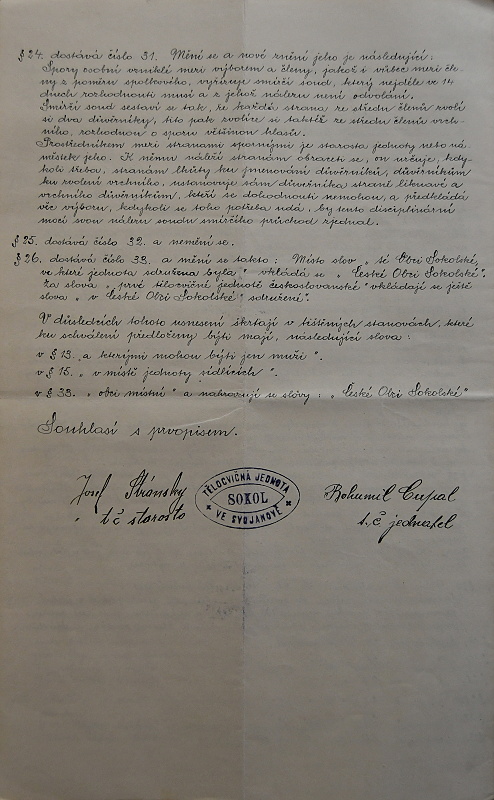 § 24. dostává číslo 31. Mění se a nové znění jeho je následující:
Spory osobní vzniklé mezi výborem a členy, jakož i vůbec mezi čle-
ny z poměru spolkového, vyřizuje smírčí soud, který nejdéle ve 14
dnech rozhodnouti musí a z jehož nálezu není odvolání.
Smírčí soud sestaví se tak, že každá strana ze středu členův zvolí
si dva důvěrníky, tito pak zvolíce si taktéž ze středu členův vrch-
ního, rozhodnou o sporu většinou hlasův.
Prostředníkem mezi stranami spornými je starosta jednoty nebo ná-
městek jeho. K němu náleží stranám obraceti se, on určuje, kdy-
koli třeba, stranám lhůty ku jmenování důvěrníků, důvěrníkům
ku zvolení vrchního, ustanovuje sám důvěrníka straně liknavé a
vrchního důvěrníkům, kteří se dohodnouti nemohou, a předkládá
věc výboru, kdykoli se toho potřeba udá, by tento disciplinární
mocí svou nálezu soudu smírčího průchod zjednal.
§ 25. dostává číslo 32. a nemění se.
§ 26. dostává číslo 33. a mění se takto: Místo slov „té Obci Sokolské,
ve které jednota sdružena byla" vkládá se „České Obci Sokolské".
Za slova „prvé tělocvičné jednotě českoslovanské" vkládají se ještě
slova „v České Obci Sokolské sdružené".
V důsledcích tohoto usnesení škrtají v tištěných stanovách, které
ku schválení předloženy býti mají, následující slova:
v § 13. „a kterými mohou býti jen muži".
v § 15. „v místě jednoty sídlících".
v § 33. „obci místní" a nahrazují se slovy: „České Obci Sokolské"
Souhlasí s prvopisem.
Josef Stránský
t. č starosta
TĚLOCVIČNÁ JEDNOTA
SOKOL
VE SVOJANOVĚ
Bohumil Cupal
t. č. jednatel